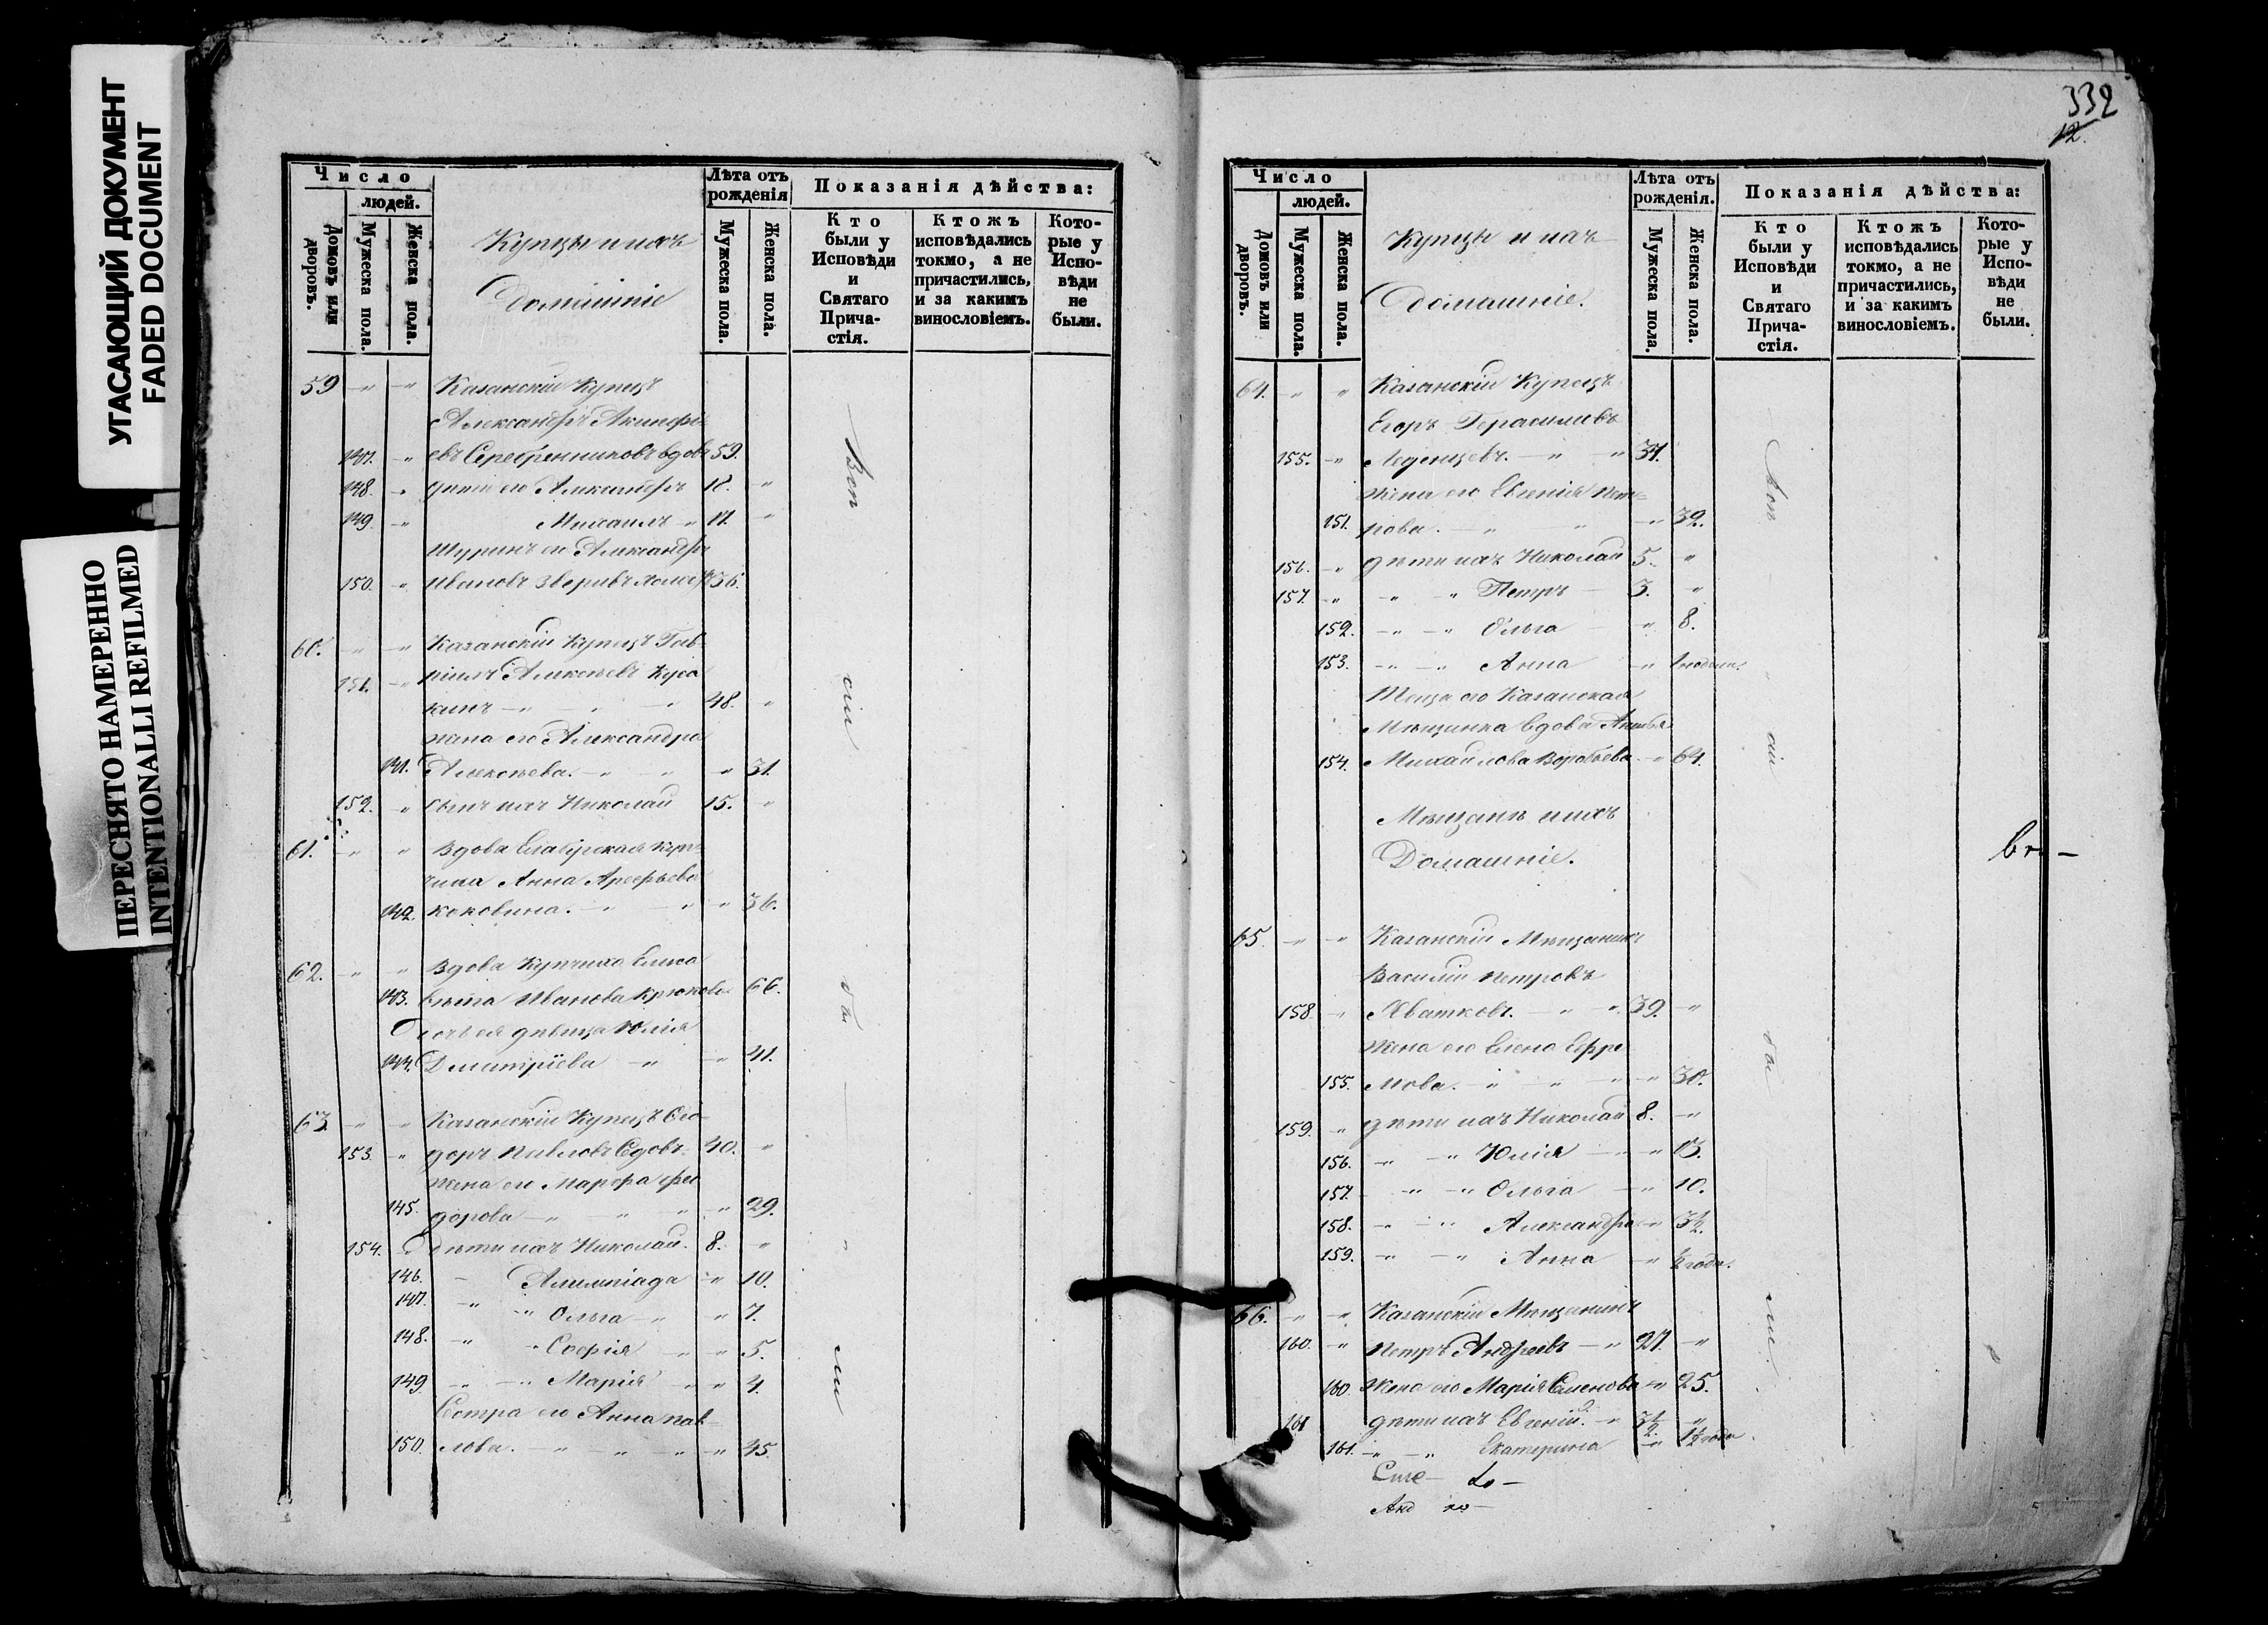 УГАСАЮЩИЙ ДОКУМЕНТ
FADED DOCUMENT
ПЕРЕСНЯТО НАМЕРЕННО
INTENTIONALLI REFILMED
Число
людей.
Домовъ или дворовъ.
Мужеска пола.
Женска пола.
Купцы и ихъ
Домашніе
Лѣта отъ рожденія
Мужеска пола.
Женска пола.
Показанія дѣйства:
Кто были у Исповѣди и Святаго Прича-стія.
Ктожъ исповѣдались токмо, а не причастились, и за какимъ винословіемъ.
Кото-рые у Испо-вѣди не были.
59 " " Казанскій Купецъ
Александръ Акинфі
147. " евъ Серебренниковъ вдовъ 59.
148. " дѣти его Александръ 18. "
149. " Михаилъ " 17. "
Шуринъ его Александръ
150. " Ивановъ Зверивъ холост 36.
60. " " Казанскій Купецъ Гав-
151. " ріилъ Алексѣевъ Куса
кинъ " " " 48. "
жена его Александра
141. Алексѣева. " " " 31.
152. " сынъ ихъ Николай 15. "
61. " " Вдова Елабужская Куп-
чиха Анна Арефьева
142. Коковина. " " " 36.
62. " " Вдова Купчиха Елиса
143. вета Иванова Крюкова 66.
Дочь ея дѣвица Юлія
144. Дмитріева " " 41.
63 " " Казанскій Купецъ Ѳео-
153 " доръ Павловъ Сѣдовъ 40. "
жена его Марфа Ѳео
145. дорова " " " " 29.
154. " дѣти ихъ Николай. 8. "
146. " Алимпіада " 10.
147. " " Ольга " " 7.
148. " " Софія " " 5.
149. " " Марія " " 4.
Сестра его Анна Пав-
150. лова. " " " " 45.
Вси
были
332
12.
Число
людей.
Домовъ или дворовъ.
Мужеска пола.
Женска пола.
Купцы и ихъ
Домашніе.
Лѣта отъ рожденія.
Мужеска пола.
Женска пола.
Показанія дѣйства:
Кто были у Исповѣди и Святаго Прича-стія.
Ктожъ исповѣдались токмо, а не причастились, и за какимъ винословіемъ.
Кото-рые у Испо-вѣди не были.
64. " " Казанскій Купецъ
Егоръ Герасимовъ
155. " Леденцевъ. " " 34.
жена его Евгенія Пет-
151. рова. " " " 32.
156. " дѣти ихъ Николай 5. "
157. " " " Петръ 3. "
152. " " Ольга " 8.
153. " " Анна "
Теща его Казанская
Мѣщанка вдова
154. Михайлова Воробьева " 64.
Мѣщане и ихъ
Домашніе.
65. " " Казанскій Мѣщанинъ
Василій Петровъ
158 " Хватковъ. " " 39. "
жена его Елена Ефре
155. мова. " " " " 30.
159. " дѣти ихъ Николай 8. "
156. " " Юлія " " 13.
157. " " Ольга " 10.
158. " " Александра " 3½.
159. " " Анна " ½ года.
66. " " Казанскій Мѣщанинъ
160. " Петръ Андреевъ " 27. "
160. жена его Марія Семенова " 25.
161 дѣти ихъ Евгеній. " 3½. "
161. " " Екатерина " 1½ года.